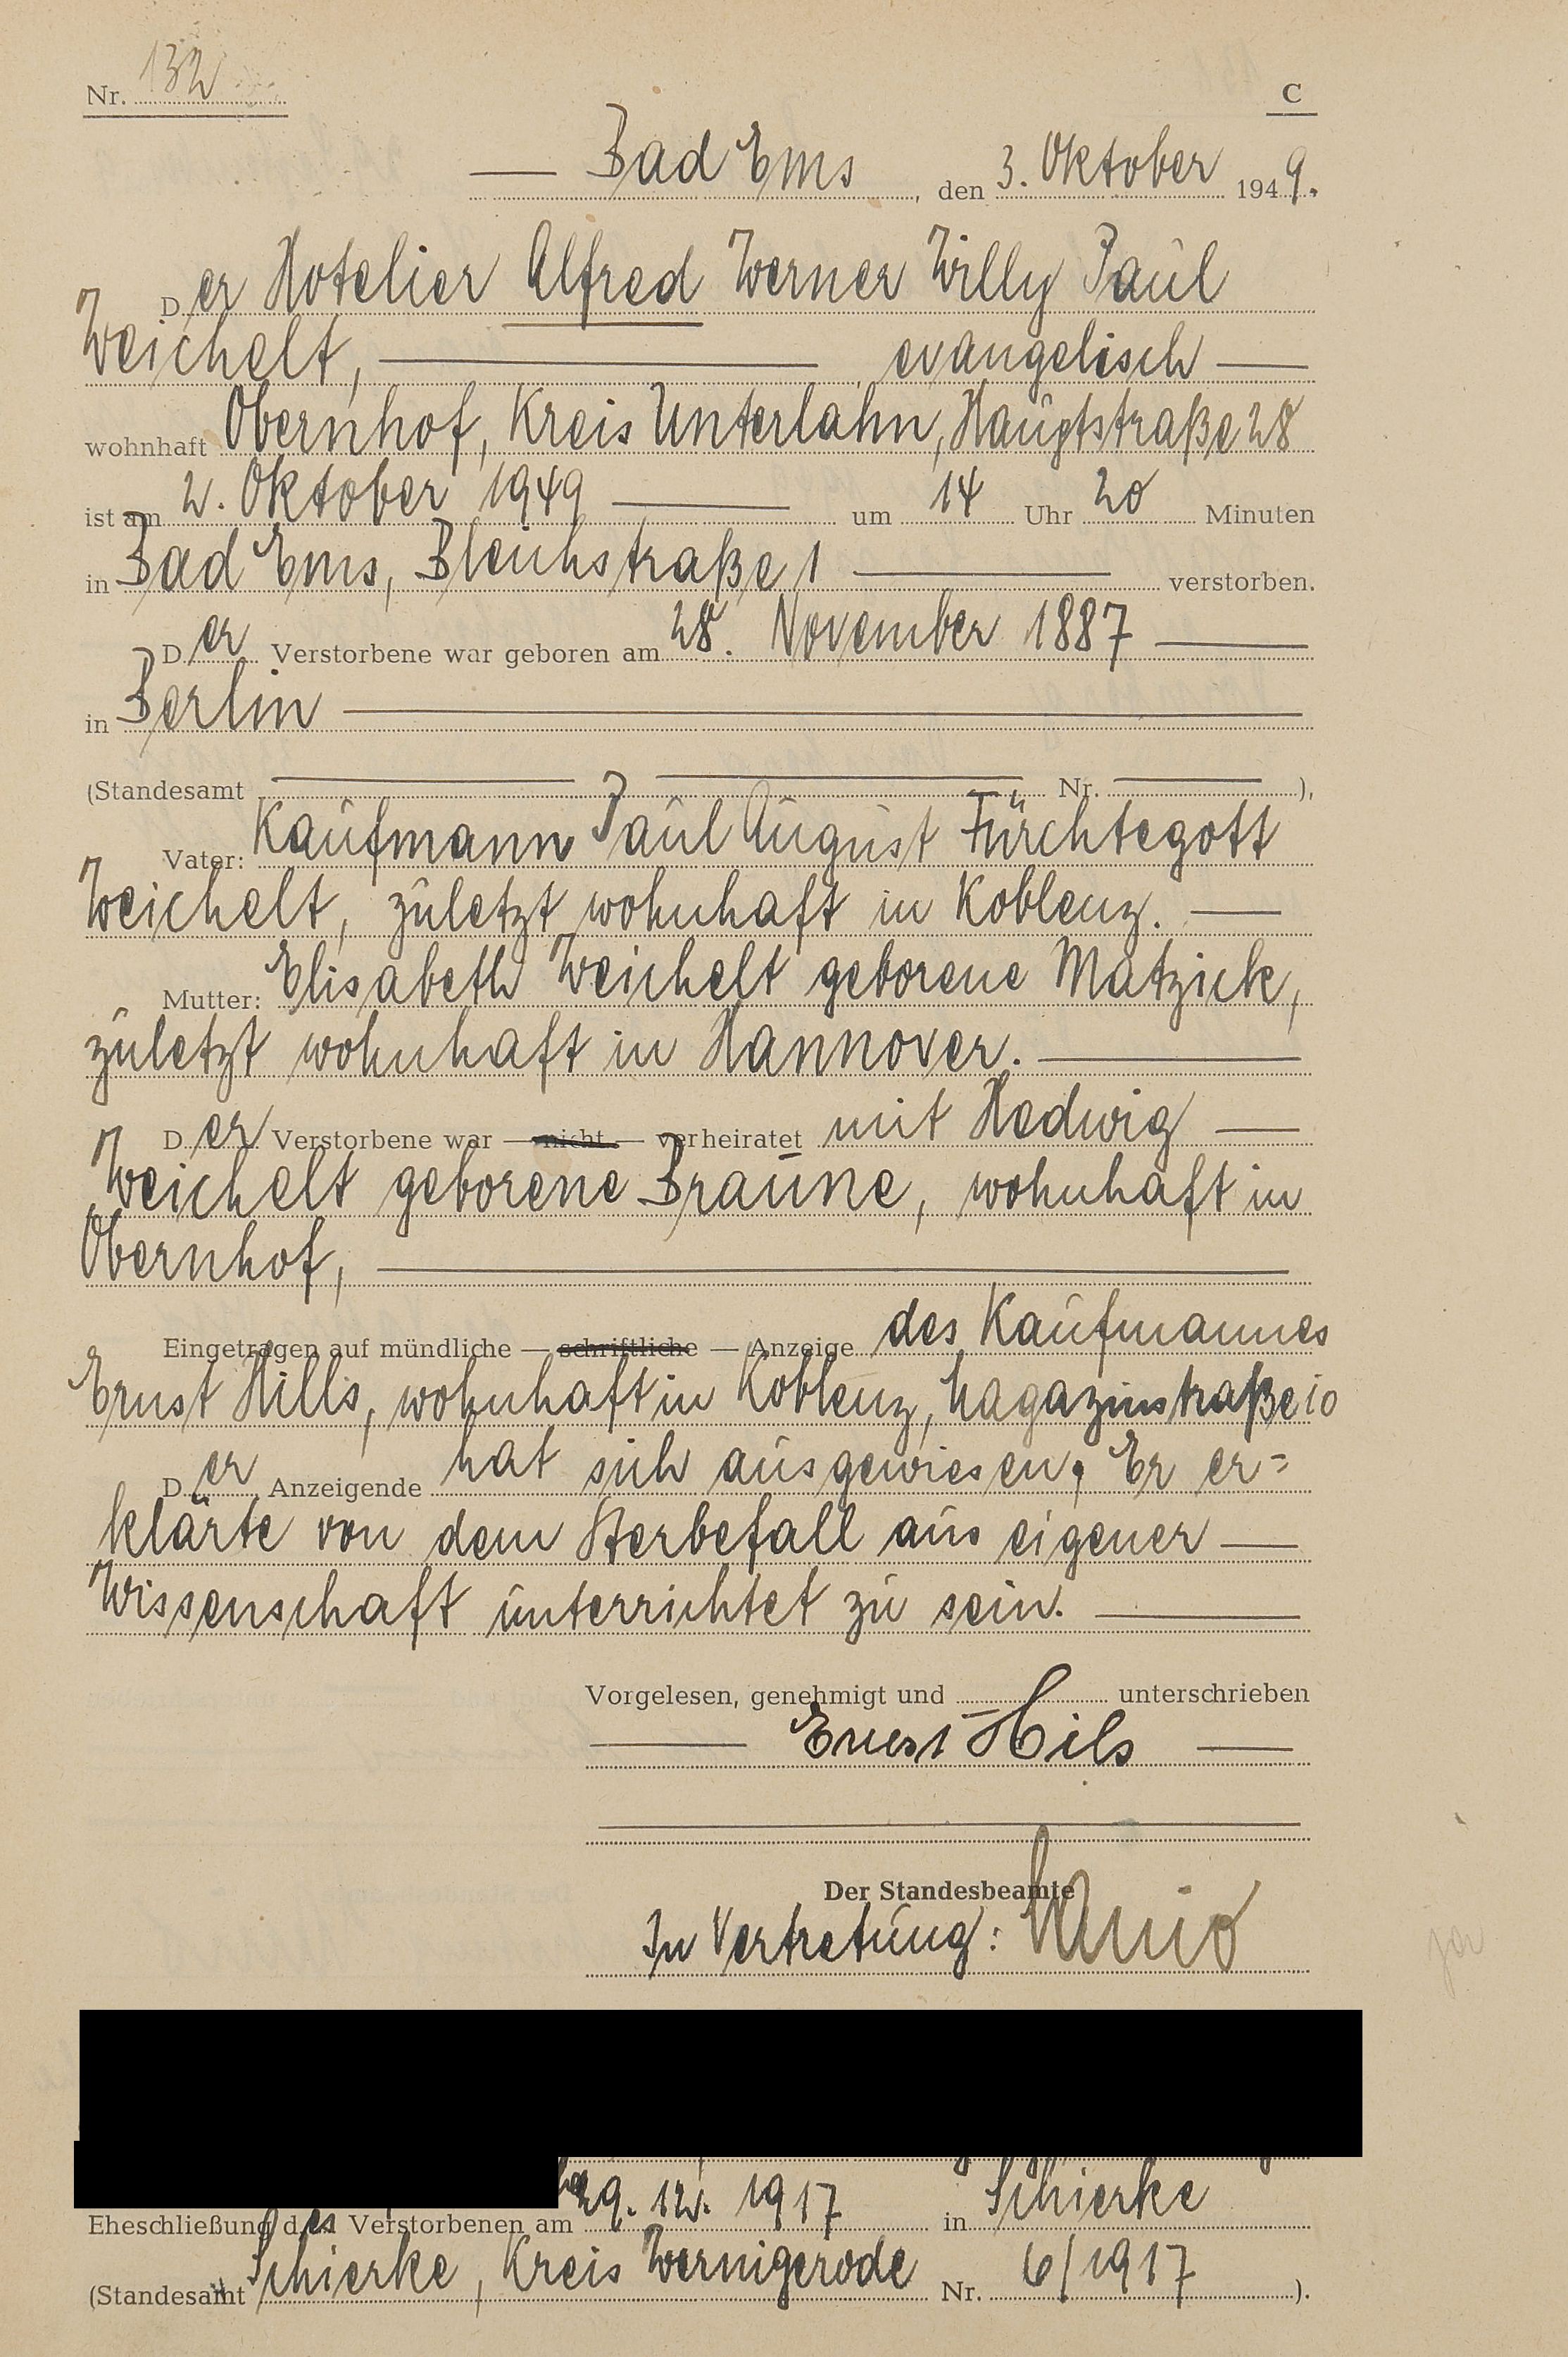 Nr. 132
C
Bad Ems, den 3. Oktober 1949.
Der Hotelier Alfred Werner Willy Paul
Weichelt, evangelisch
wohnhaft Obernhof, Kreis Unterlahn, Hauptstraße 28
ist am 2. Oktober 1949 um 14 Uhr 20 Minuten
in Bad Ems, Bleichstraße 1 verstorben.
Der Verstorbene war geboren am 28. November 1887
in Berlin
(Standesamt Nr. ),
Vater: Kaufmann Paul August Fürchtegott
Weichelt, zuletzt wohnhaft in Koblenz.
Mutter: Elisabeth Weichelt geborene Matzick,
zuletzt wohnhaft in Hannover.
Der Verstorbene war — nicht — verheiratet mit Hedwig
Weichelt geborene Braune, wohnhaft in
Obernhof,
Eingetragen auf mündliche — schriftliche — Anzeige des Kaufmannes
Ernst Hills, wohnhaft in Koblenz, Magazinstraße 10
Der Anzeigende hat sich ausgewiesen, Er er=
klärte von dem Sterbefall aus eigener
Wissenschaft unterrichtet zu sein.
Vorgelesen, genehmigt und unterschrieben
Ernst Hils
Der Standesbeamte
In Vertretung:
Eheschließung des Verstorbenen am 29. 12. 1917 in Schierke
(Standesamt Schierke, Kreis Wernigerode Nr. 6/1917).